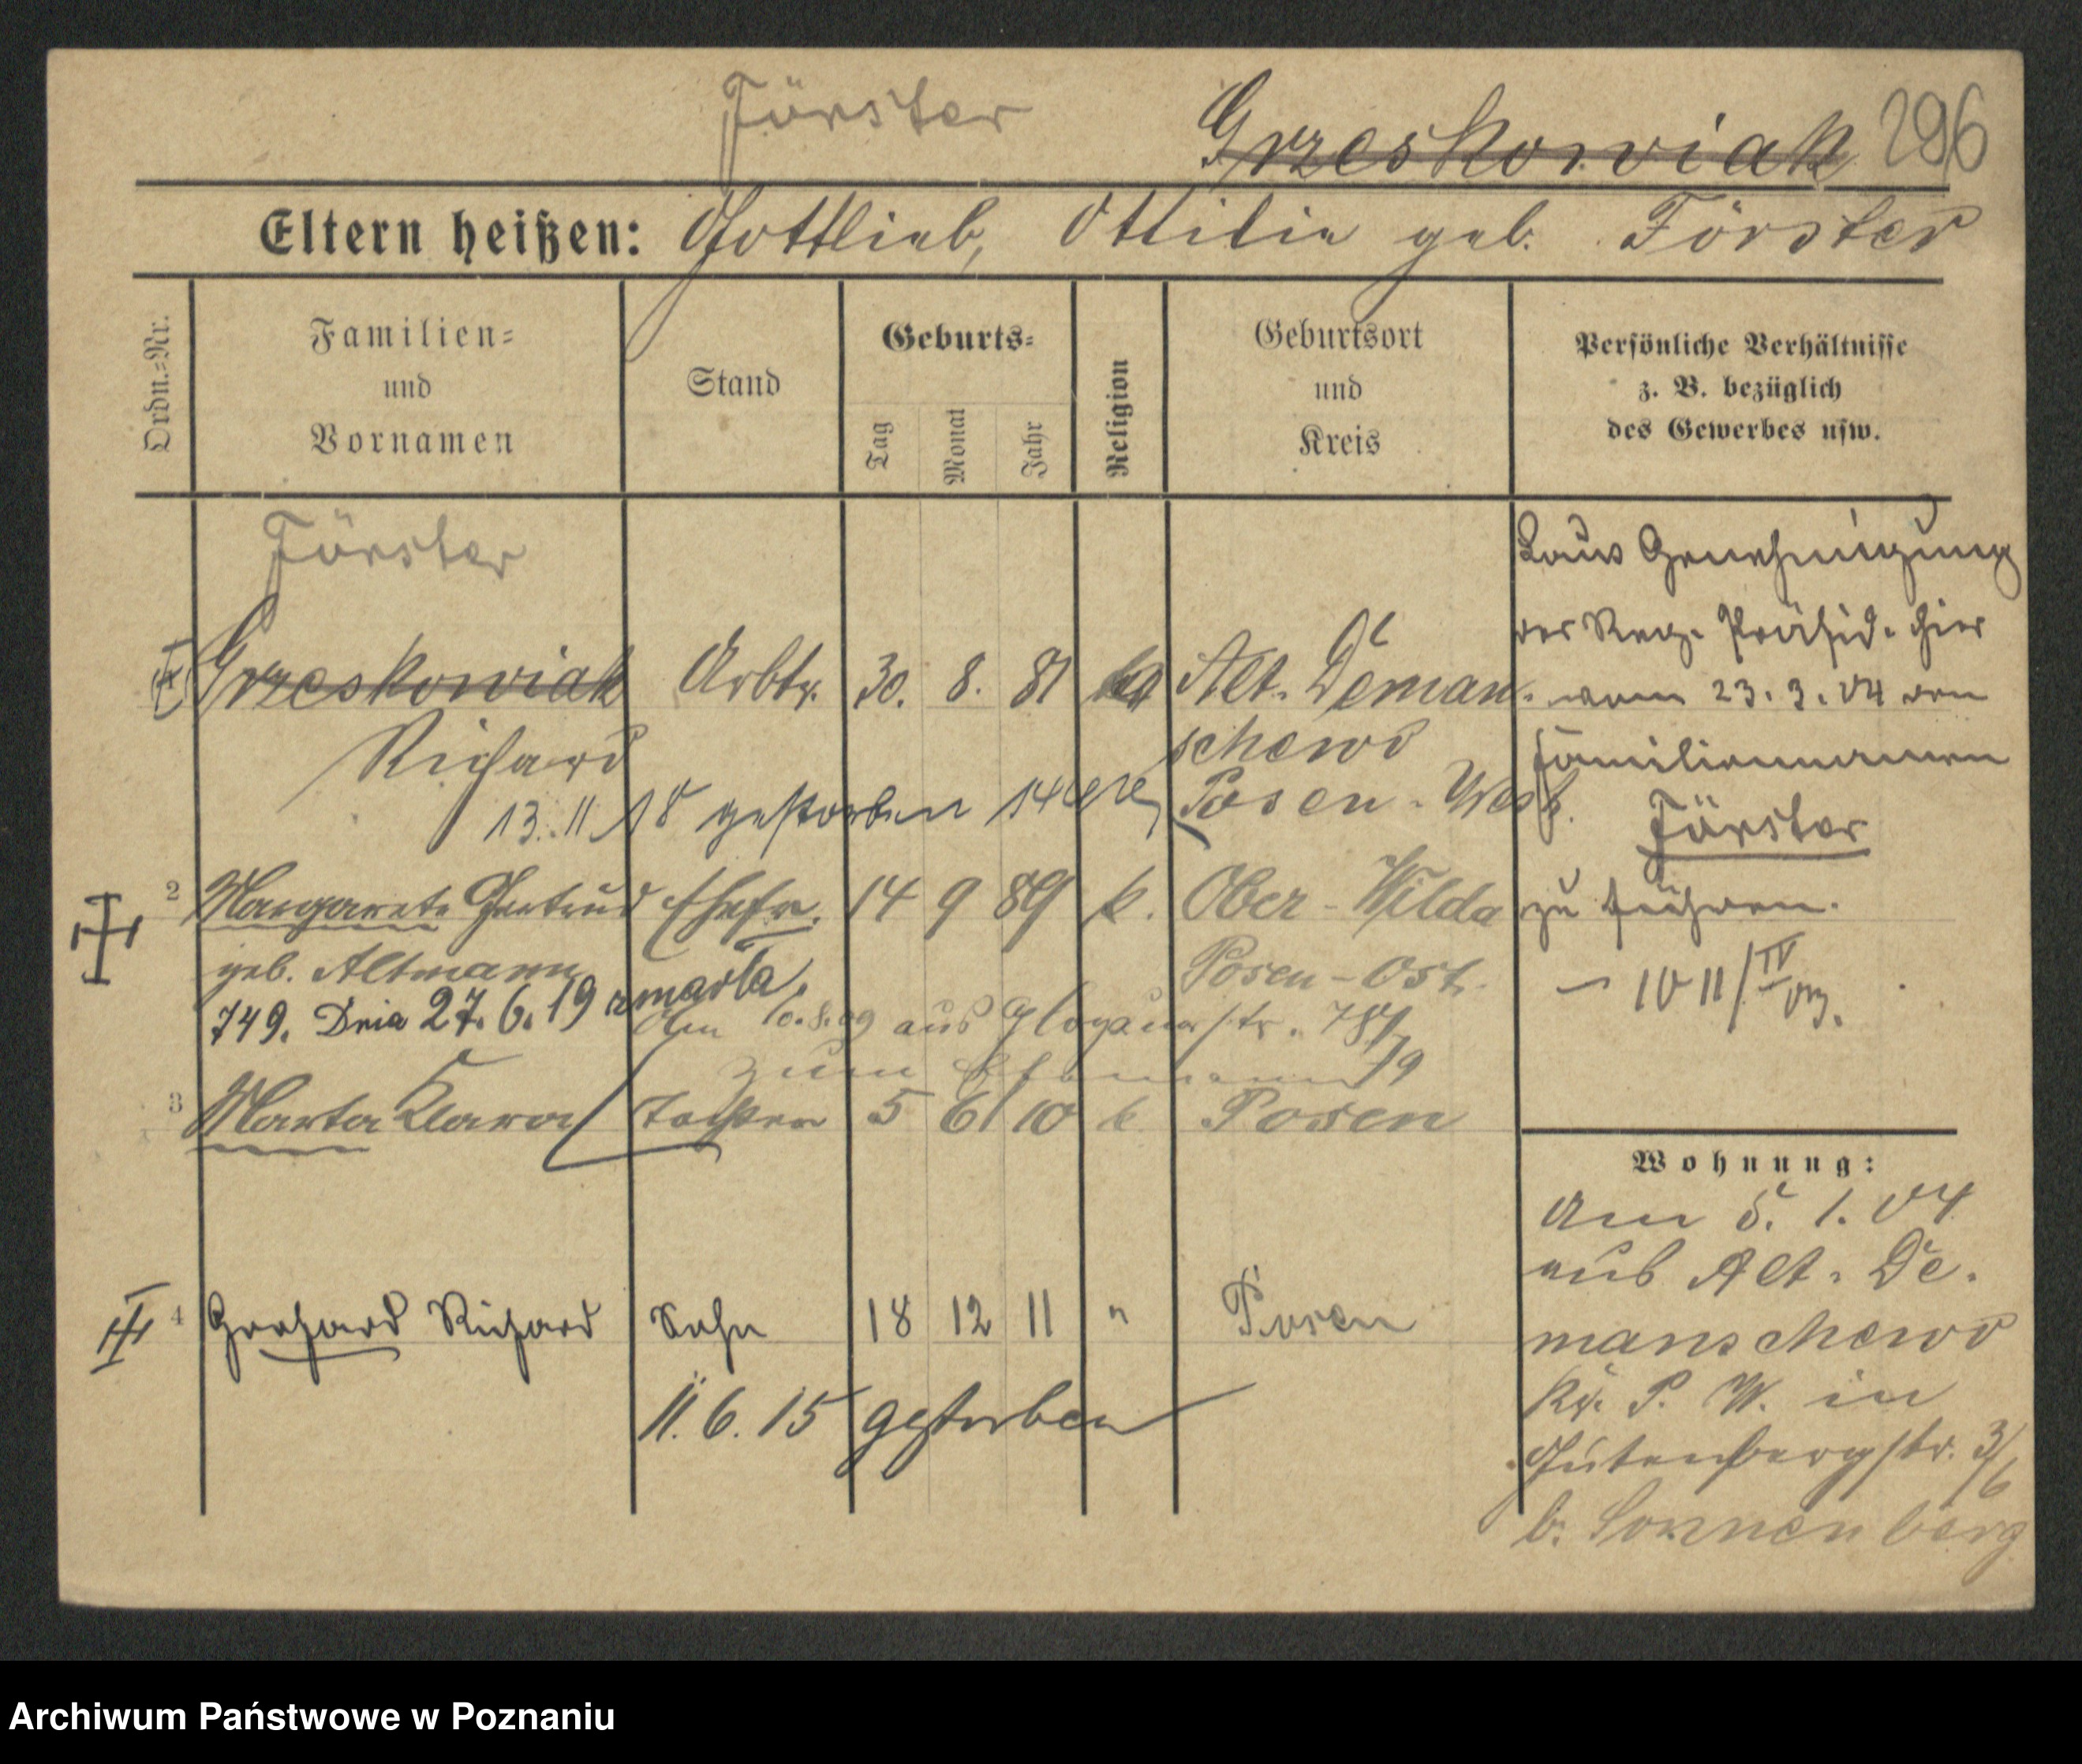 Förster
Grzeskowiak 296
Eltern heißen: Gottlieb, Ottilie geb. Förster
Ordn.=Nr.
Familien=
und
Vornamen
Stand
Geburts=
Tag
Monat
Jahr
Religion
Geburtsort
und
Kreis
Persönliche Verhältnisse
z. B. bezüglich
des Gewerbes usw.
Förster
Grzeskowiak Arbtr. 30. 8. 81 Alt-Deman-
Richard schewo
13.11.18 gestorben Posen-West.
2 Margarete Gertrud Ehefr. 14 9 89 k. Ober-Wilda
geb. Altmann Posen-Ost.
749. Dnia 27.6.19 zmarła.
Am 10.8.09 aus Glogauerstr.
zum Ehemann
3 Marta Klara Tochter 5 6 10 k Posen
4 Gerhard Richard Sohn 18 12 11 " Posen
11.6.15 gestorben
Laut Genehmigung
des Reg. Präsid. hier
vom 23.3.04 den
Familiennamen
Förster
zu führen.
Wohnung:
Am 5.1.04
aus Alt-De-
manschewo
Kr. P. W. in
Gutenbergstr. 3/6
b. Sonnenberg
Archiwum Państwowe w Poznaniu